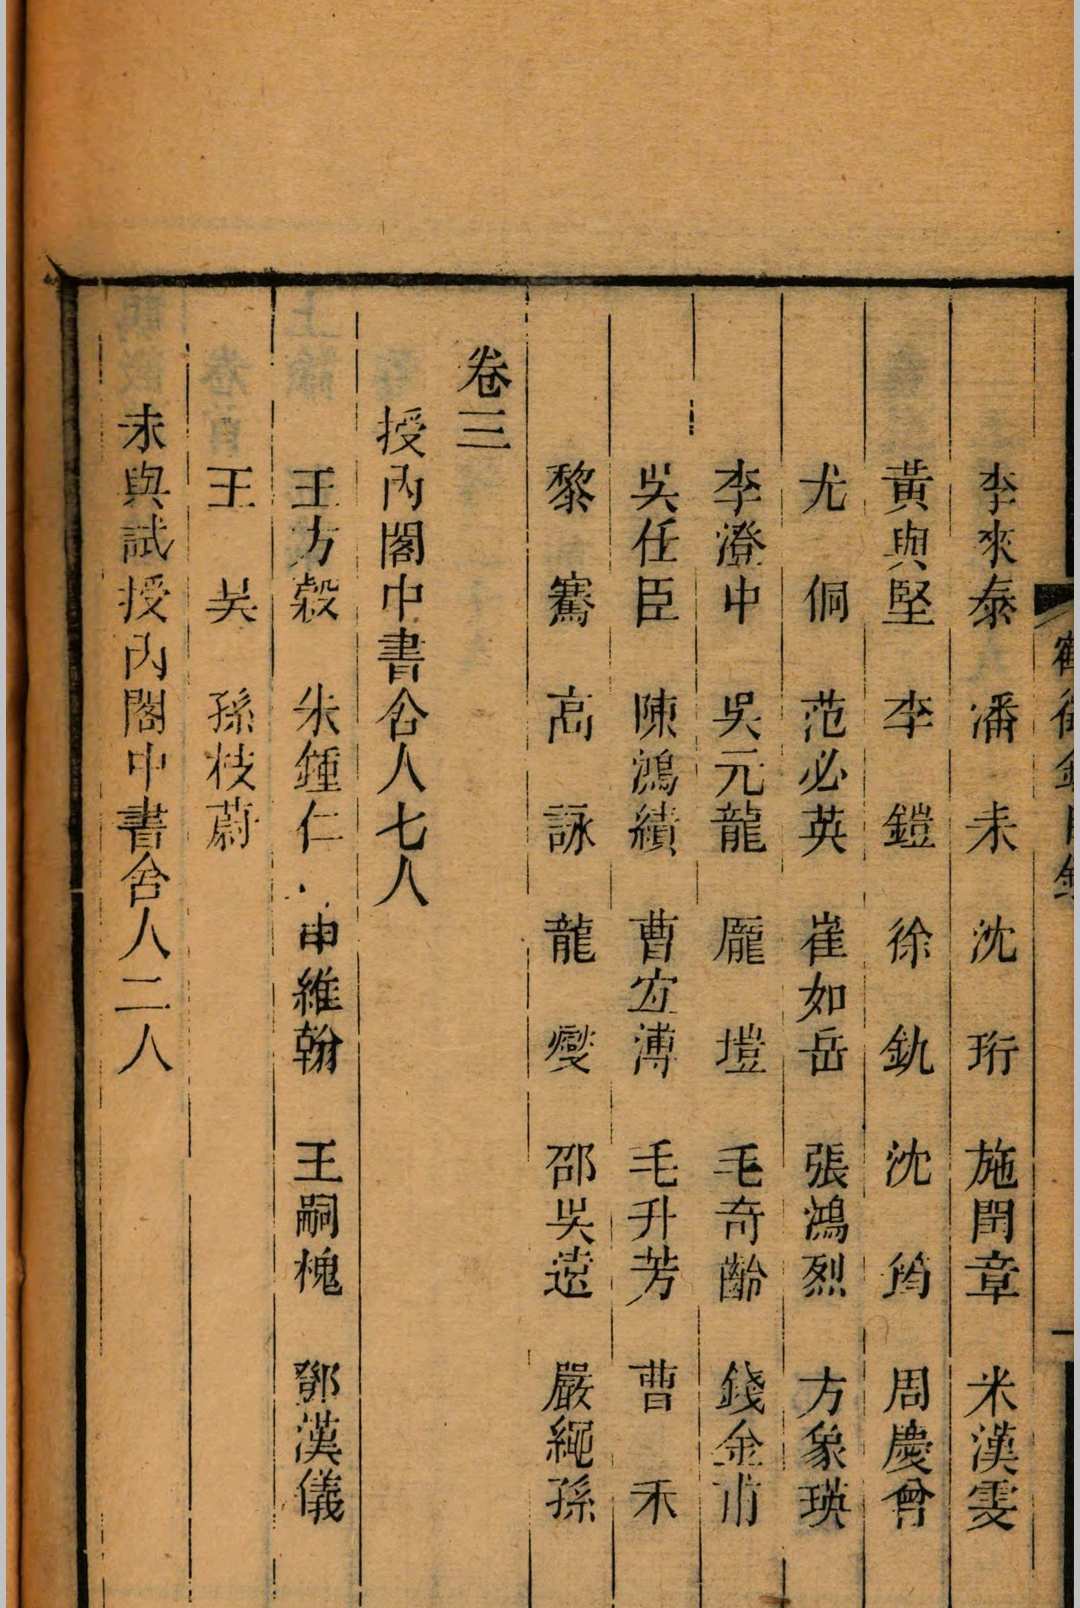 李來泰　潘耒　沈珩　施閏章　米漢雯
黃與堅　李鎧　徐釚　沈筠　周慶曾
尤侗　范必英　崔如岳　張鴻烈　方象瑛
李澄中　吳元龍　龐塏　毛奇齡　錢金甫
吳任臣　陳鴻績　曹宜溥　毛升芳　曹禾
黎騫　高詠　龍燮　邵吳遠　嚴繩孫
卷三
授內閣中書舍人七人
王方穀　朱鍾仁　申維翰　王嗣槐　鄧漢儀
王昊　孫枝蔚
未與試授內閣中書舍人二人